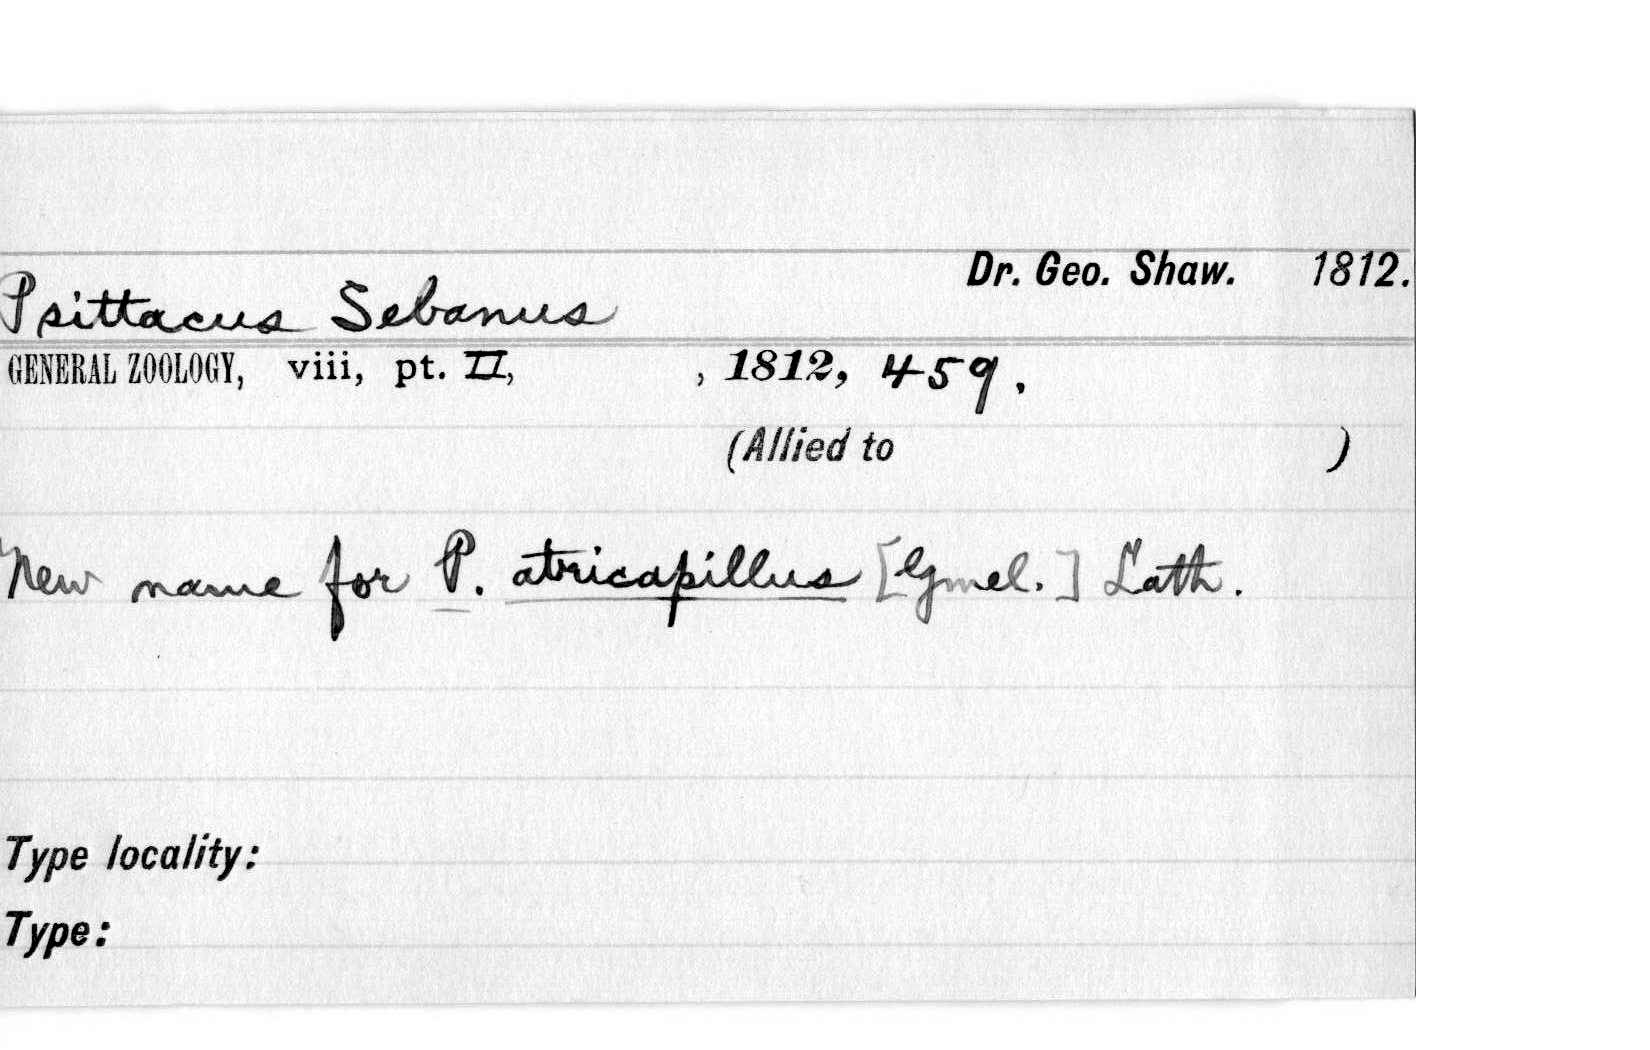 Dr. Geo. Shaw. 1812.
Psittacus Sebanus
GENERAL ZOOLOGY, viii, pt. II, , 1812, 459.
(Allied to )
New name for P. atricapillus [Gmel.] Lath.
Type locality:
Type: